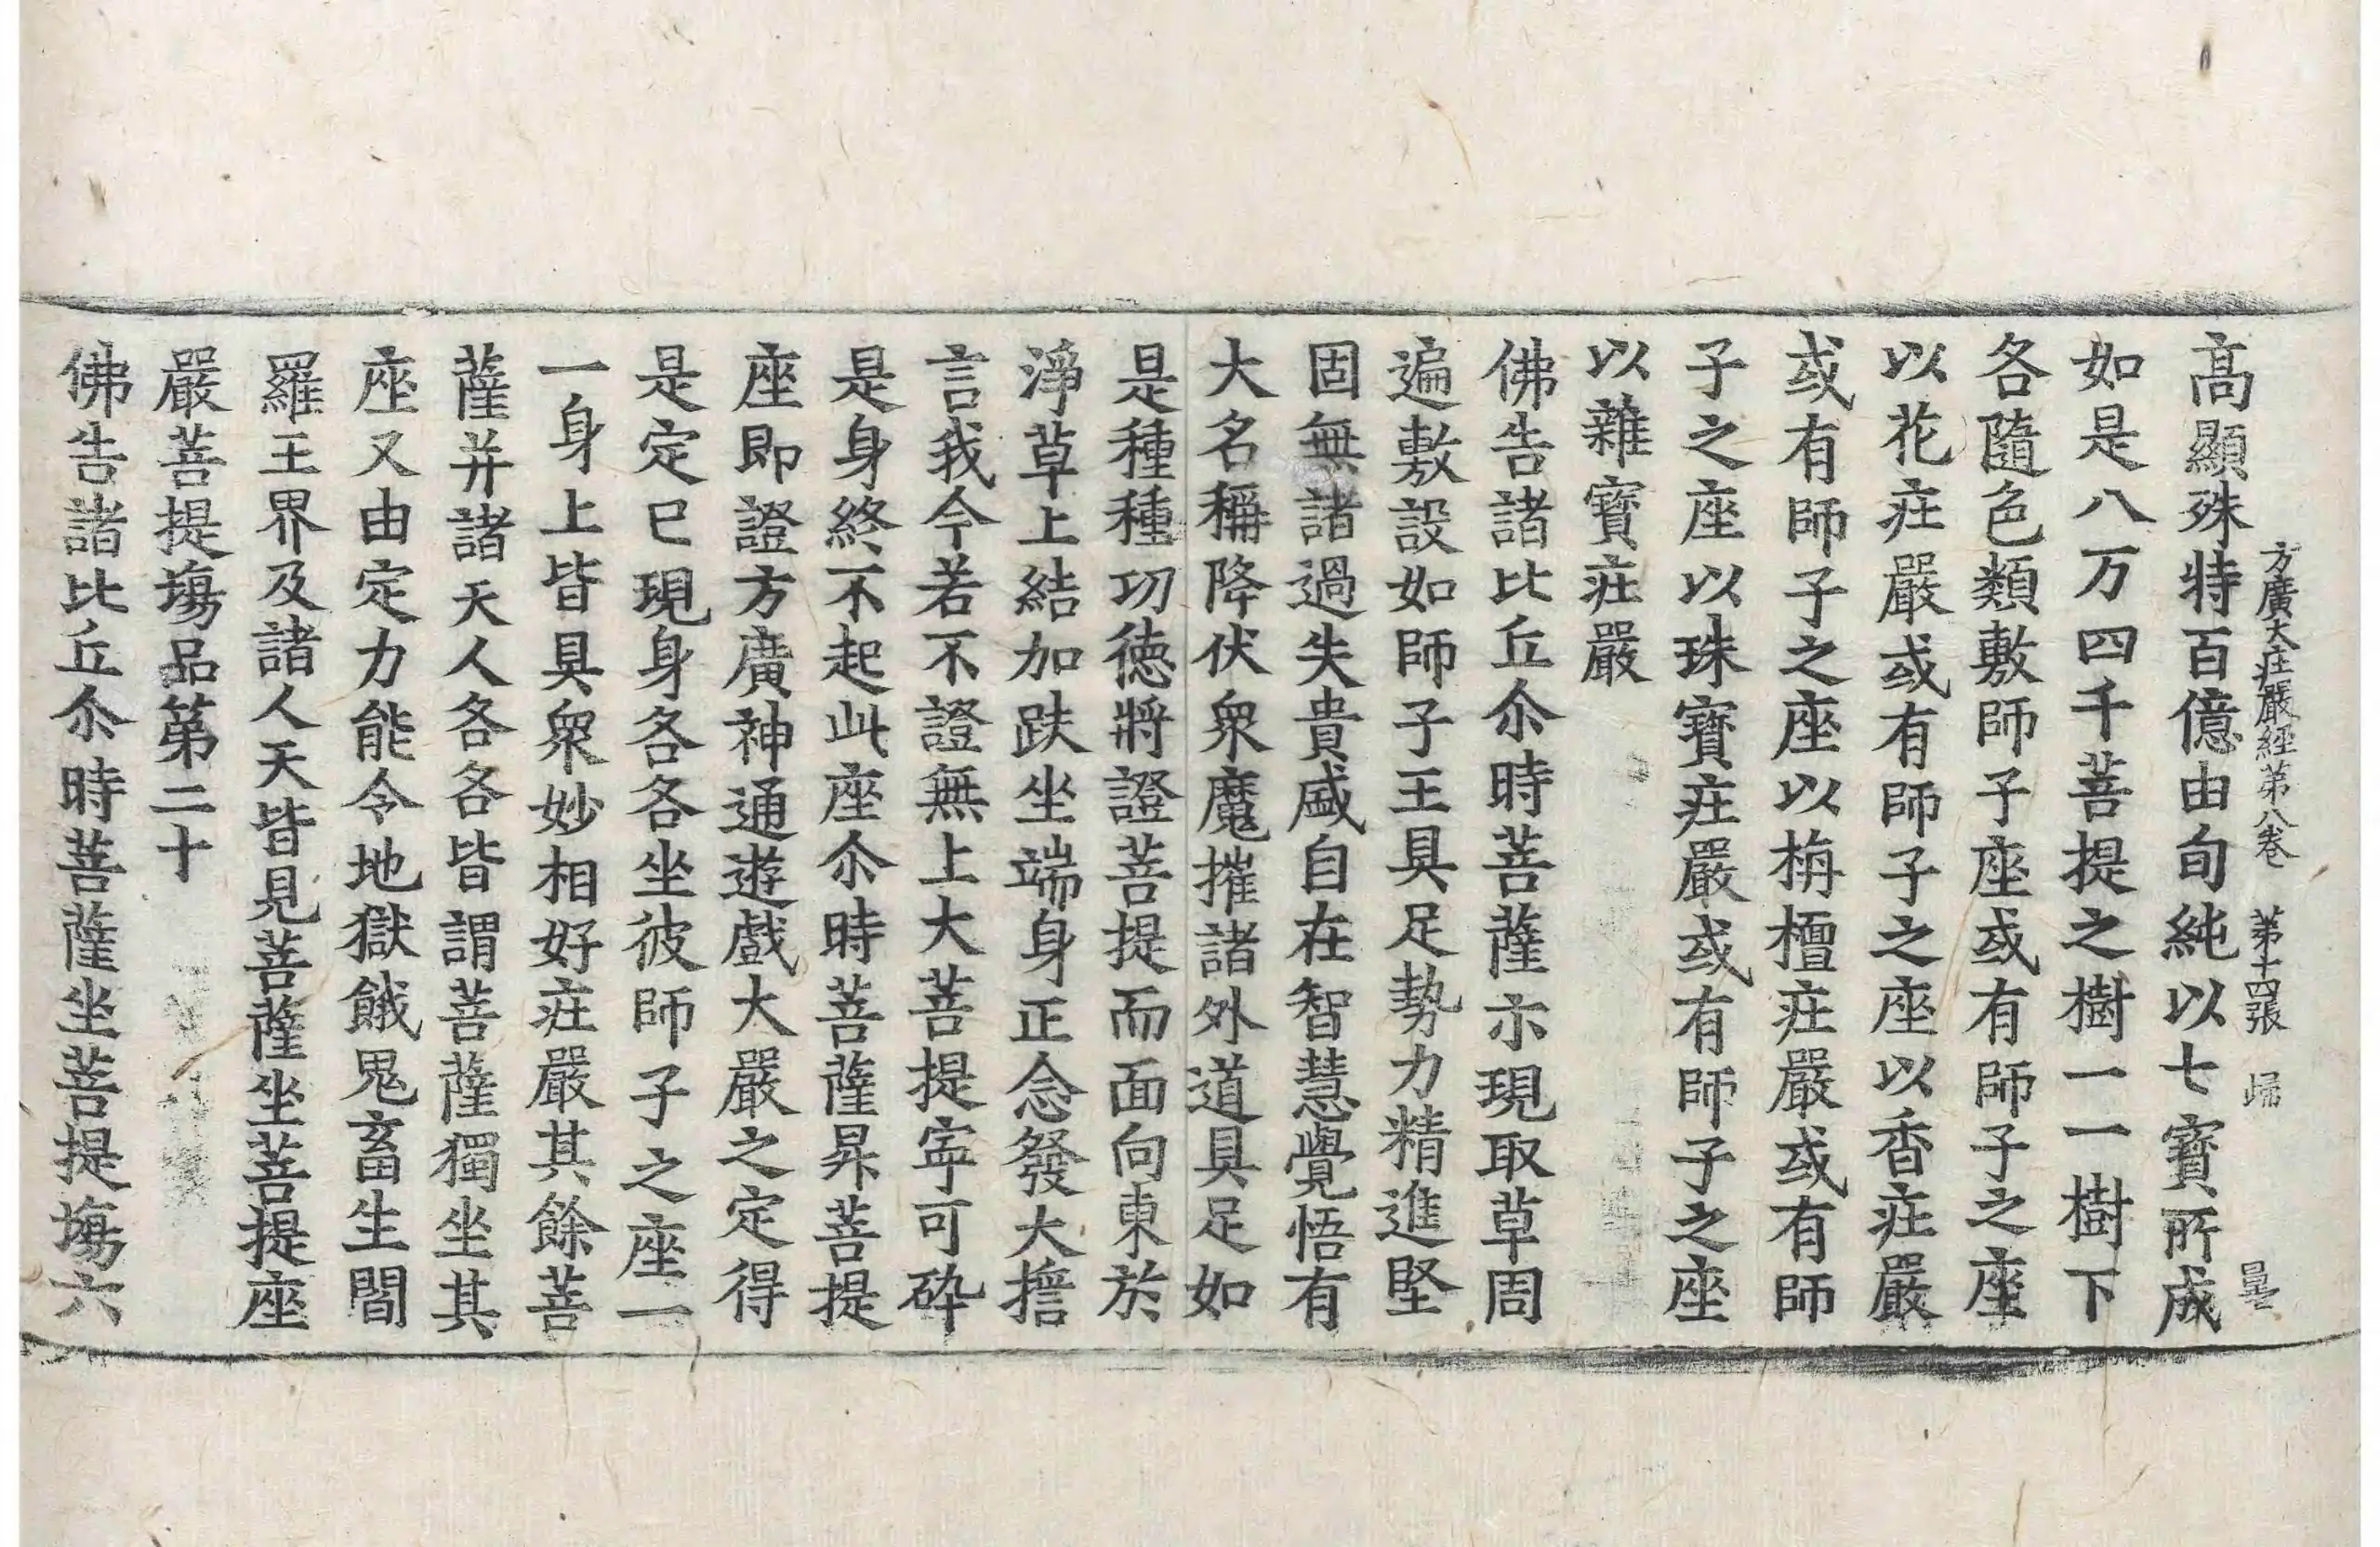 方廣大庄嚴經第八卷 第十四張 歸
高顯殊特百億由旬純以七寶所成
如是八万四千菩提之樹一一樹下
各隨色類敷師子座或有師子之座
以花庄嚴或有師子之座以香庄嚴
或有師子之座以栴檀庄嚴或有師
子之座以珠寶庄嚴或有師子之座
以雜寶庄嚴
佛告諸比丘尒時菩薩示現取草周
遍敷設如師子王具足勢力精進堅
固無諸過失貴盛自在智慧覺悟有
大名稱降伏衆魔摧諸外道具足如
是種種功德將證菩提而面向東於
淨草上結加趺坐端身正念發大擔
言我今若不證無上大菩提寧可碎
是身終不起此座尒時菩薩昇菩提
座即證方廣神通遊戲大嚴之定得
是定已現身各各坐彼師子之座一
一身上皆具衆妙相好庄嚴其餘菩
薩并諸天人各各皆謂菩薩獨坐其
座又由定力能令地獄餓鬼畜生閻
羅王界及諸人天皆見菩薩坐菩提座
嚴菩提場品第二十
佛告諸比丘尒時菩薩坐菩提場六